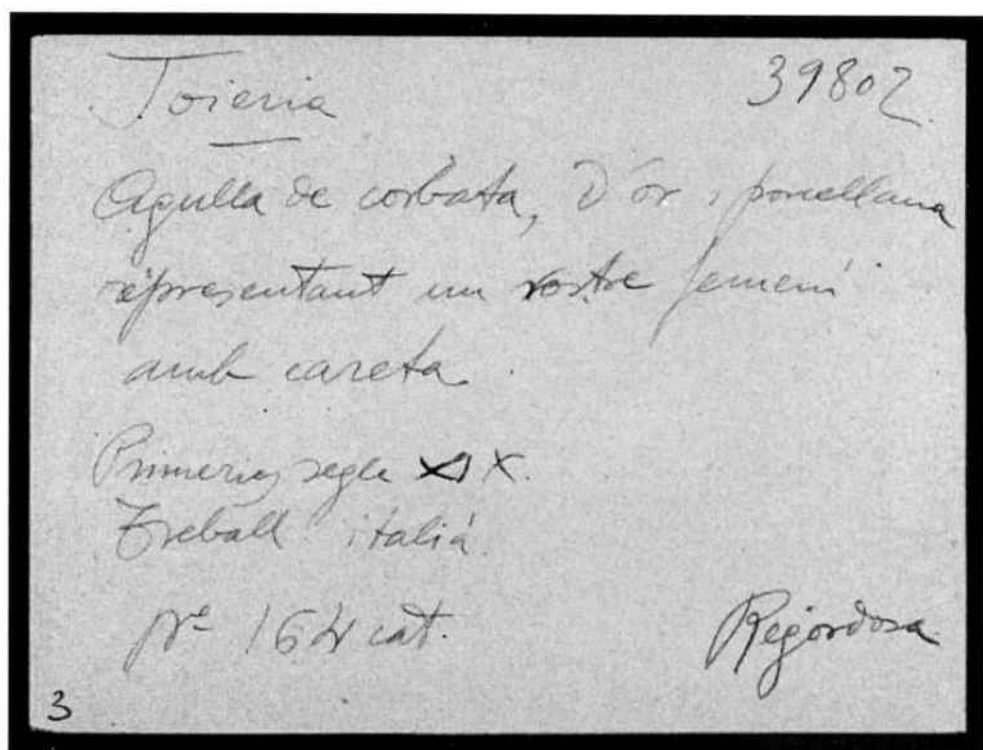 Joieria 39802
Agulla de corbata, d'or i porcellana
representant un rostre femení
amb careta.
Primeries segle XIX.
Treball italià.
Nº 164 cat. Regordosa
3